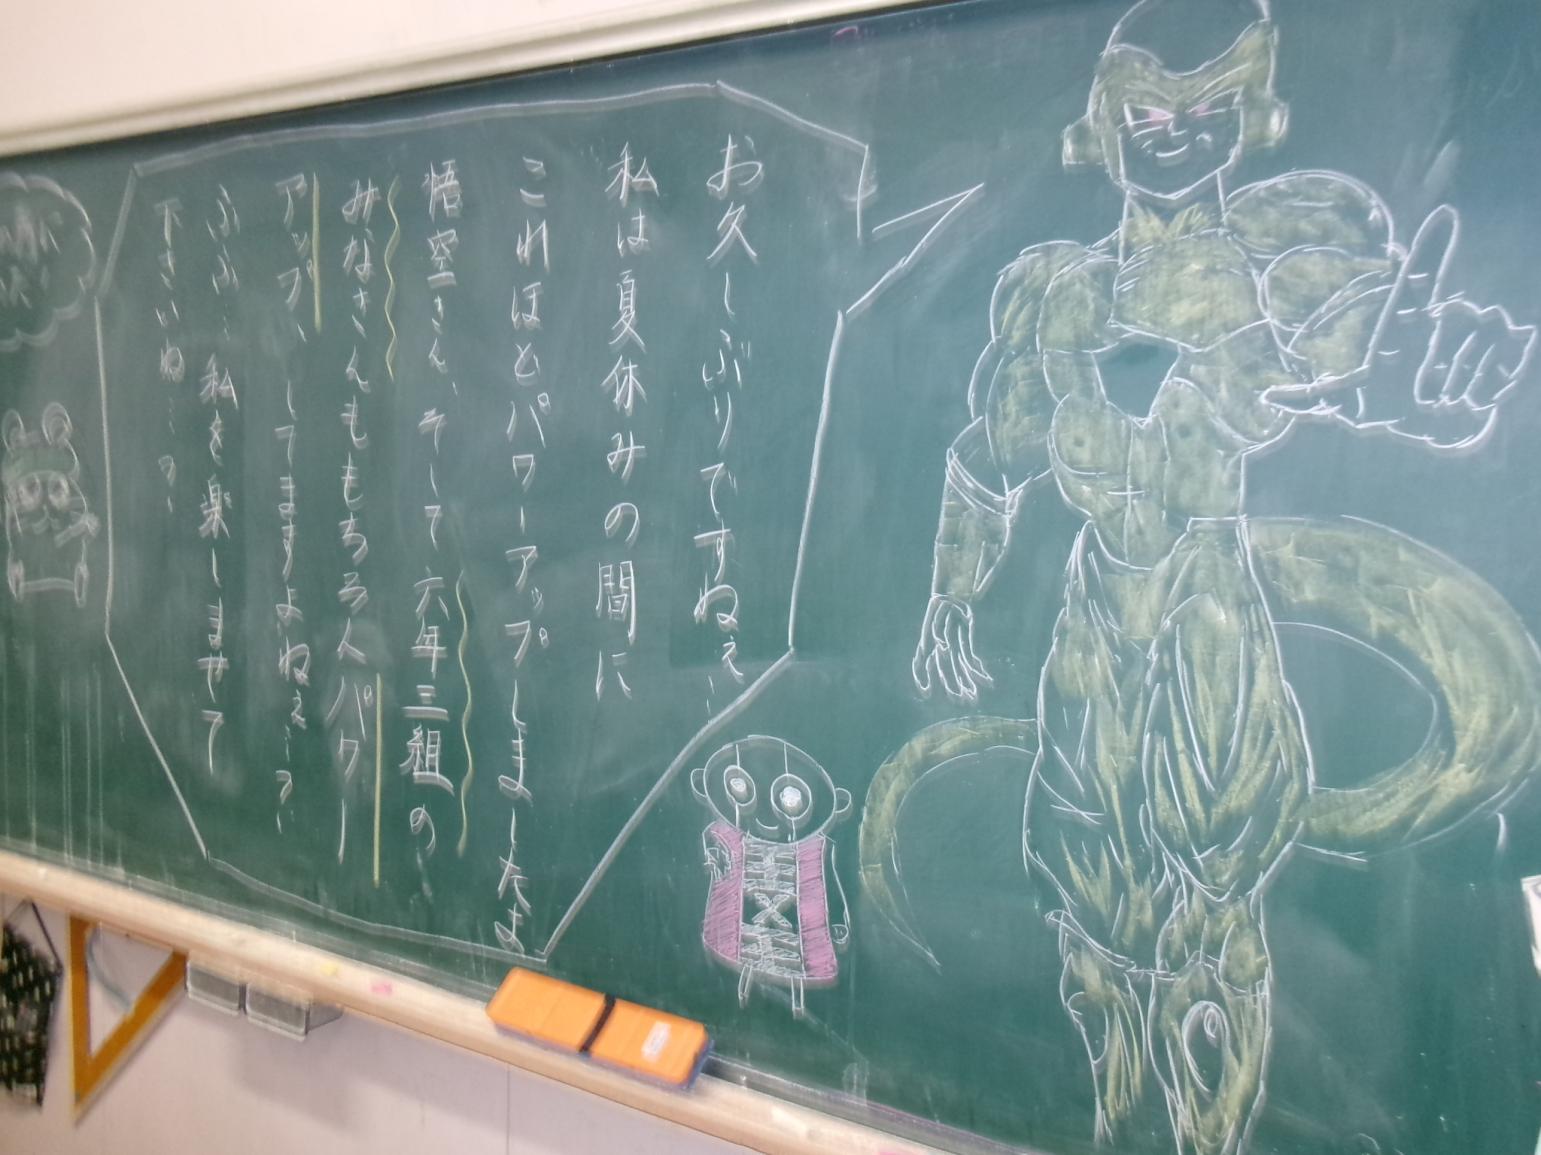 お久しぶりですねぇ…
私は夏休みの間に
これほどパワーアップしましたよ
悟空さん、そして六年三組の
みなさんももちろんパワー
アップ、してますよねぇ…?
ふふ…私を楽しませて
下さいね…?